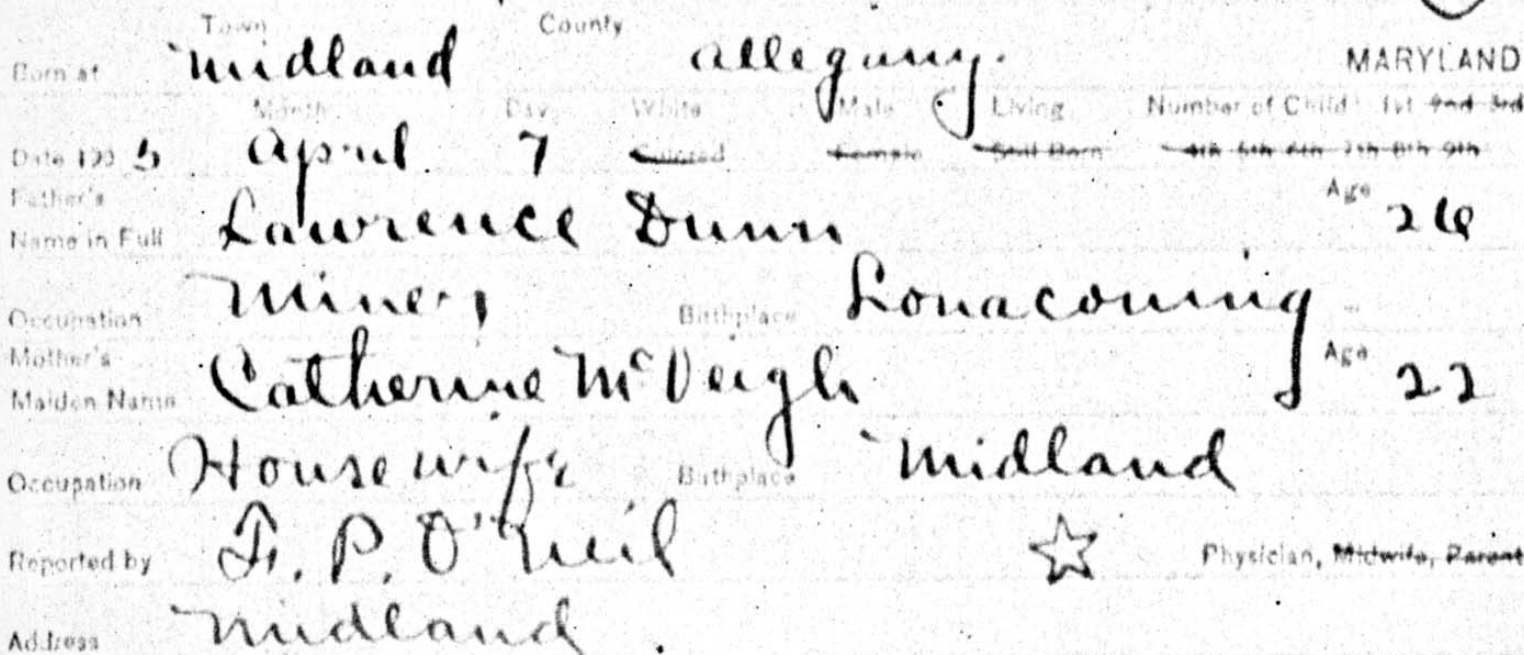 Town County
Born at Midland Allegany. MARYLAND
Month Day White Male Living Number of Child 1st 2nd 3rd
Date 190 5 April 7 Colored Female Still Born 4th 5th 6th 7th 8th 9th
Father's Age
Name in Full Lawrence Dunn 26
Occupation Miner Birthplace Lonaconing
Mother's Age
Maiden Name Catherine McVeigh 22
Occupation Housewife Birthplace Midland
Reported by F. P. O'Neil Physician, Midwife, Parent
Address Midland